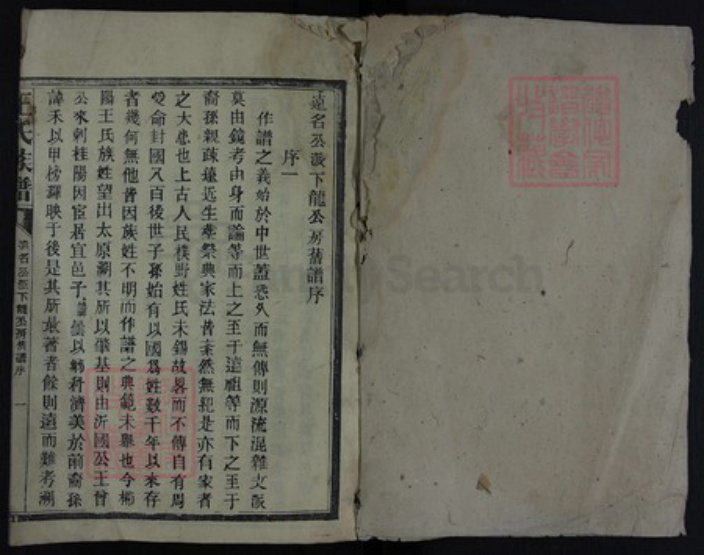 遠名公派下龍公房舊譜序
序一
作譜之義始於中世蓋恐久而無傳則源流混雜支派
莫由鏡考由身而論等而上之至于遠祖等而下之至于
裔孫親疎遠近生卒祭典家法皆紊然無紀是亦有家者
之大患也上古人民樸野姓氏未錫故畧而不傳自有周
受命封國八百後世子孫始有以國為姓數千年以來存
者幾何無他皆因族姓不明而作譜之典範未舉也今
陽王氏族姓望出太原溯其所以肇基則由沂國公王曾
公來刺桂陽因宦居宜邑子以科濟美於前裔孫
諱禾以甲榜輝映于後是其所最著者餘則遠而難考溯
王氏族譜
遠名公派下龍公房舊譜序
一
FamilySearch